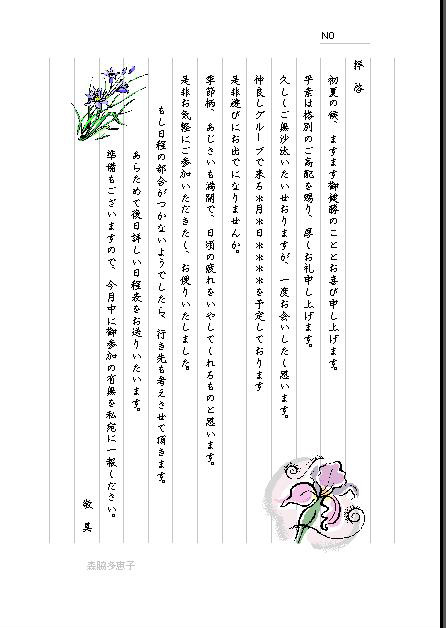 NO
拝啓
初夏の候、ますます御健勝のこととお喜び申し上げます。
平素は格別のご高配を賜り、厚くお礼申し上げます。
久しくご無沙汰いたいせおりますが、一度お会いしたく思います。
仲良しグループで来る＊月＊日＊＊＊＊を予定しております
是非遊びにお出でになりませんか。
季節柄、あじさいも満開で、日頃の疲れをいやしてくれるものと思います。
是非お気軽にご参加いただきたく、お便りいたしました。
もし日程の都合がつかないようでしたら、行き先も考えさせて頂きます。
あらためて後日詳しい日程表をお送りいたいます。
準備もございますので、今月中に御参加の有無を私宛に一報ください。
敬具
森脇多恵子